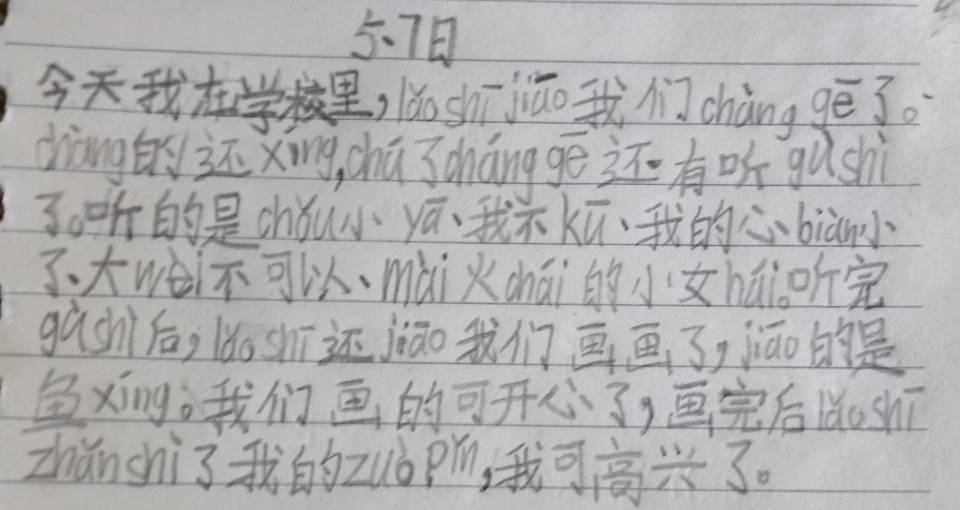 5.7日
今天我在学校里,lǎo shī jiāo 我们chàng gē了。
chàng的还xíng,chú了cháng gē还有听gù shi
了。听的是chǒu小yā、我不kū、我的心biàn小
了、大wèi不可以、mài火chái的小女hái。听完
gù shi后,lǎo shī还jiāo我们画画了,jiāo的是
鱼xíng。我们画的可开心了,画完后lǎo shī
zhǎn shì了我的zuò pǐn,我可高兴了。